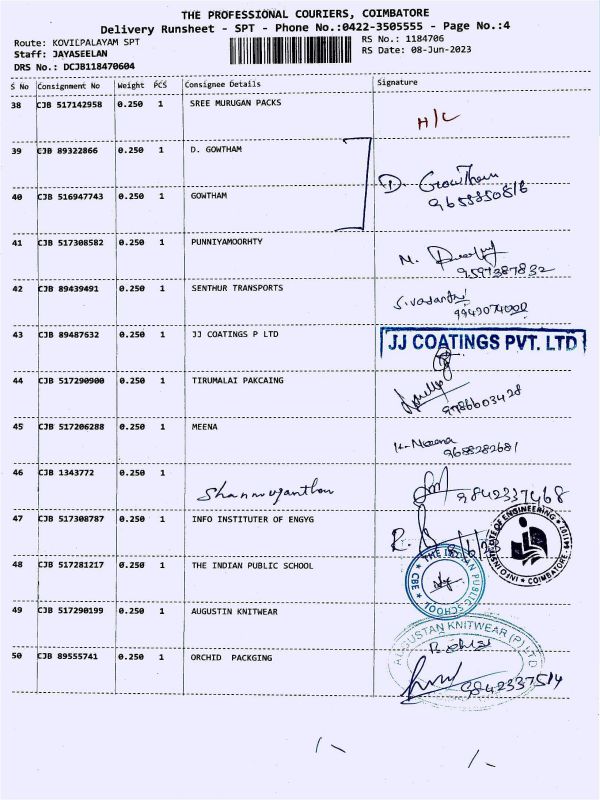 THE PROFESSIONAL COURIERS, COIMBATORE
Delivery Runsheet - SPT - Phone No.:0422-3505555 - Page No.:4
Route: KOVILPALAYAM SPT RS No.: 1184706
Staff: JAYASEELAN RS Date: 08-Jun-2023
DRS No.: DCJB118470604
S No Consignment No Weight PCS Consignee Details Signature
38 CJB 517142958 0.250 1 SREE MURUGAN PACKS H/C
39 CJB 89322866 0.250 1 D. GOWTHAM
D. Gowtham
40 CJB 516947743 0.250 1 GOWTHAM
41 CJB 517308582 0.250 1 PUNNIYAMOORHTY M.
9597387832
42 CJB 89439491 0.250 1 SENTHUR TRANSPORTS
43 CJB 89487632 0.250 1 JJ COATINGS P LTD JJ COATINGS PVT. LTD
44 CJB 517290900 0.250 1 TIRUMALAI PAKCAING
9786603428
45 CJB 517206288 0.250 1 MEENA K. Meena
9688282681
46 CJB 1343772 0.250 1 9842337468
47 CJB 517308787 0.250 1 INFO INSTITUTER OF ENGYG R.
INFO INSTITUTE OF ENGINEERING COIMBATORE
48 CJB 517281217 0.250 1 THE INDIAN PUBLIC SCHOOL
THE INDIAN PUBLIC SCHOOL CBE
49 CJB 517290199 0.250 1 AUGUSTIN KNITWEAR
AUGUSTAN KNITWEAR (P) LTD
50 CJB 89555741 0.250 1 ORCHID PACKGING
9842337514